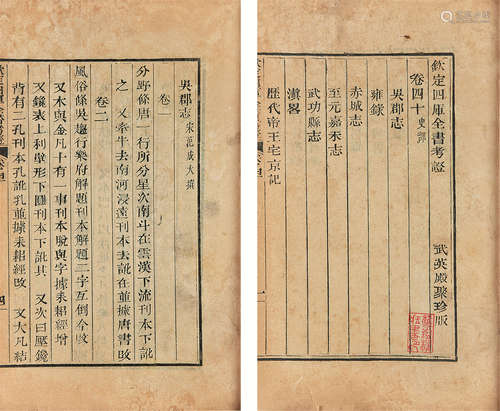 欽定四庫全書考證
卷四十 史部
吳郡志
雍錄
赤城志
至元嘉禾志
武功縣志
滇畧
歷代帝王宅京記
武英殿聚珍版
吳郡志 宋范成大撰
卷一
分野條唐一行所分星次南斗在雲漢下流刊本下訛
之 又牽牛去南河浸遠刊本去訛在並據唐書改
卷二
風俗條吳趨行樂府解題刊本解題二字互倒今改
又木與金凡十有一事刊本脫與字據耒耜經增
又鏡表上利壁形下刊本下訛其 又次曰壓鏡
背有二孔刊本孔訛孔並據耒耜經改 又大凡結
四